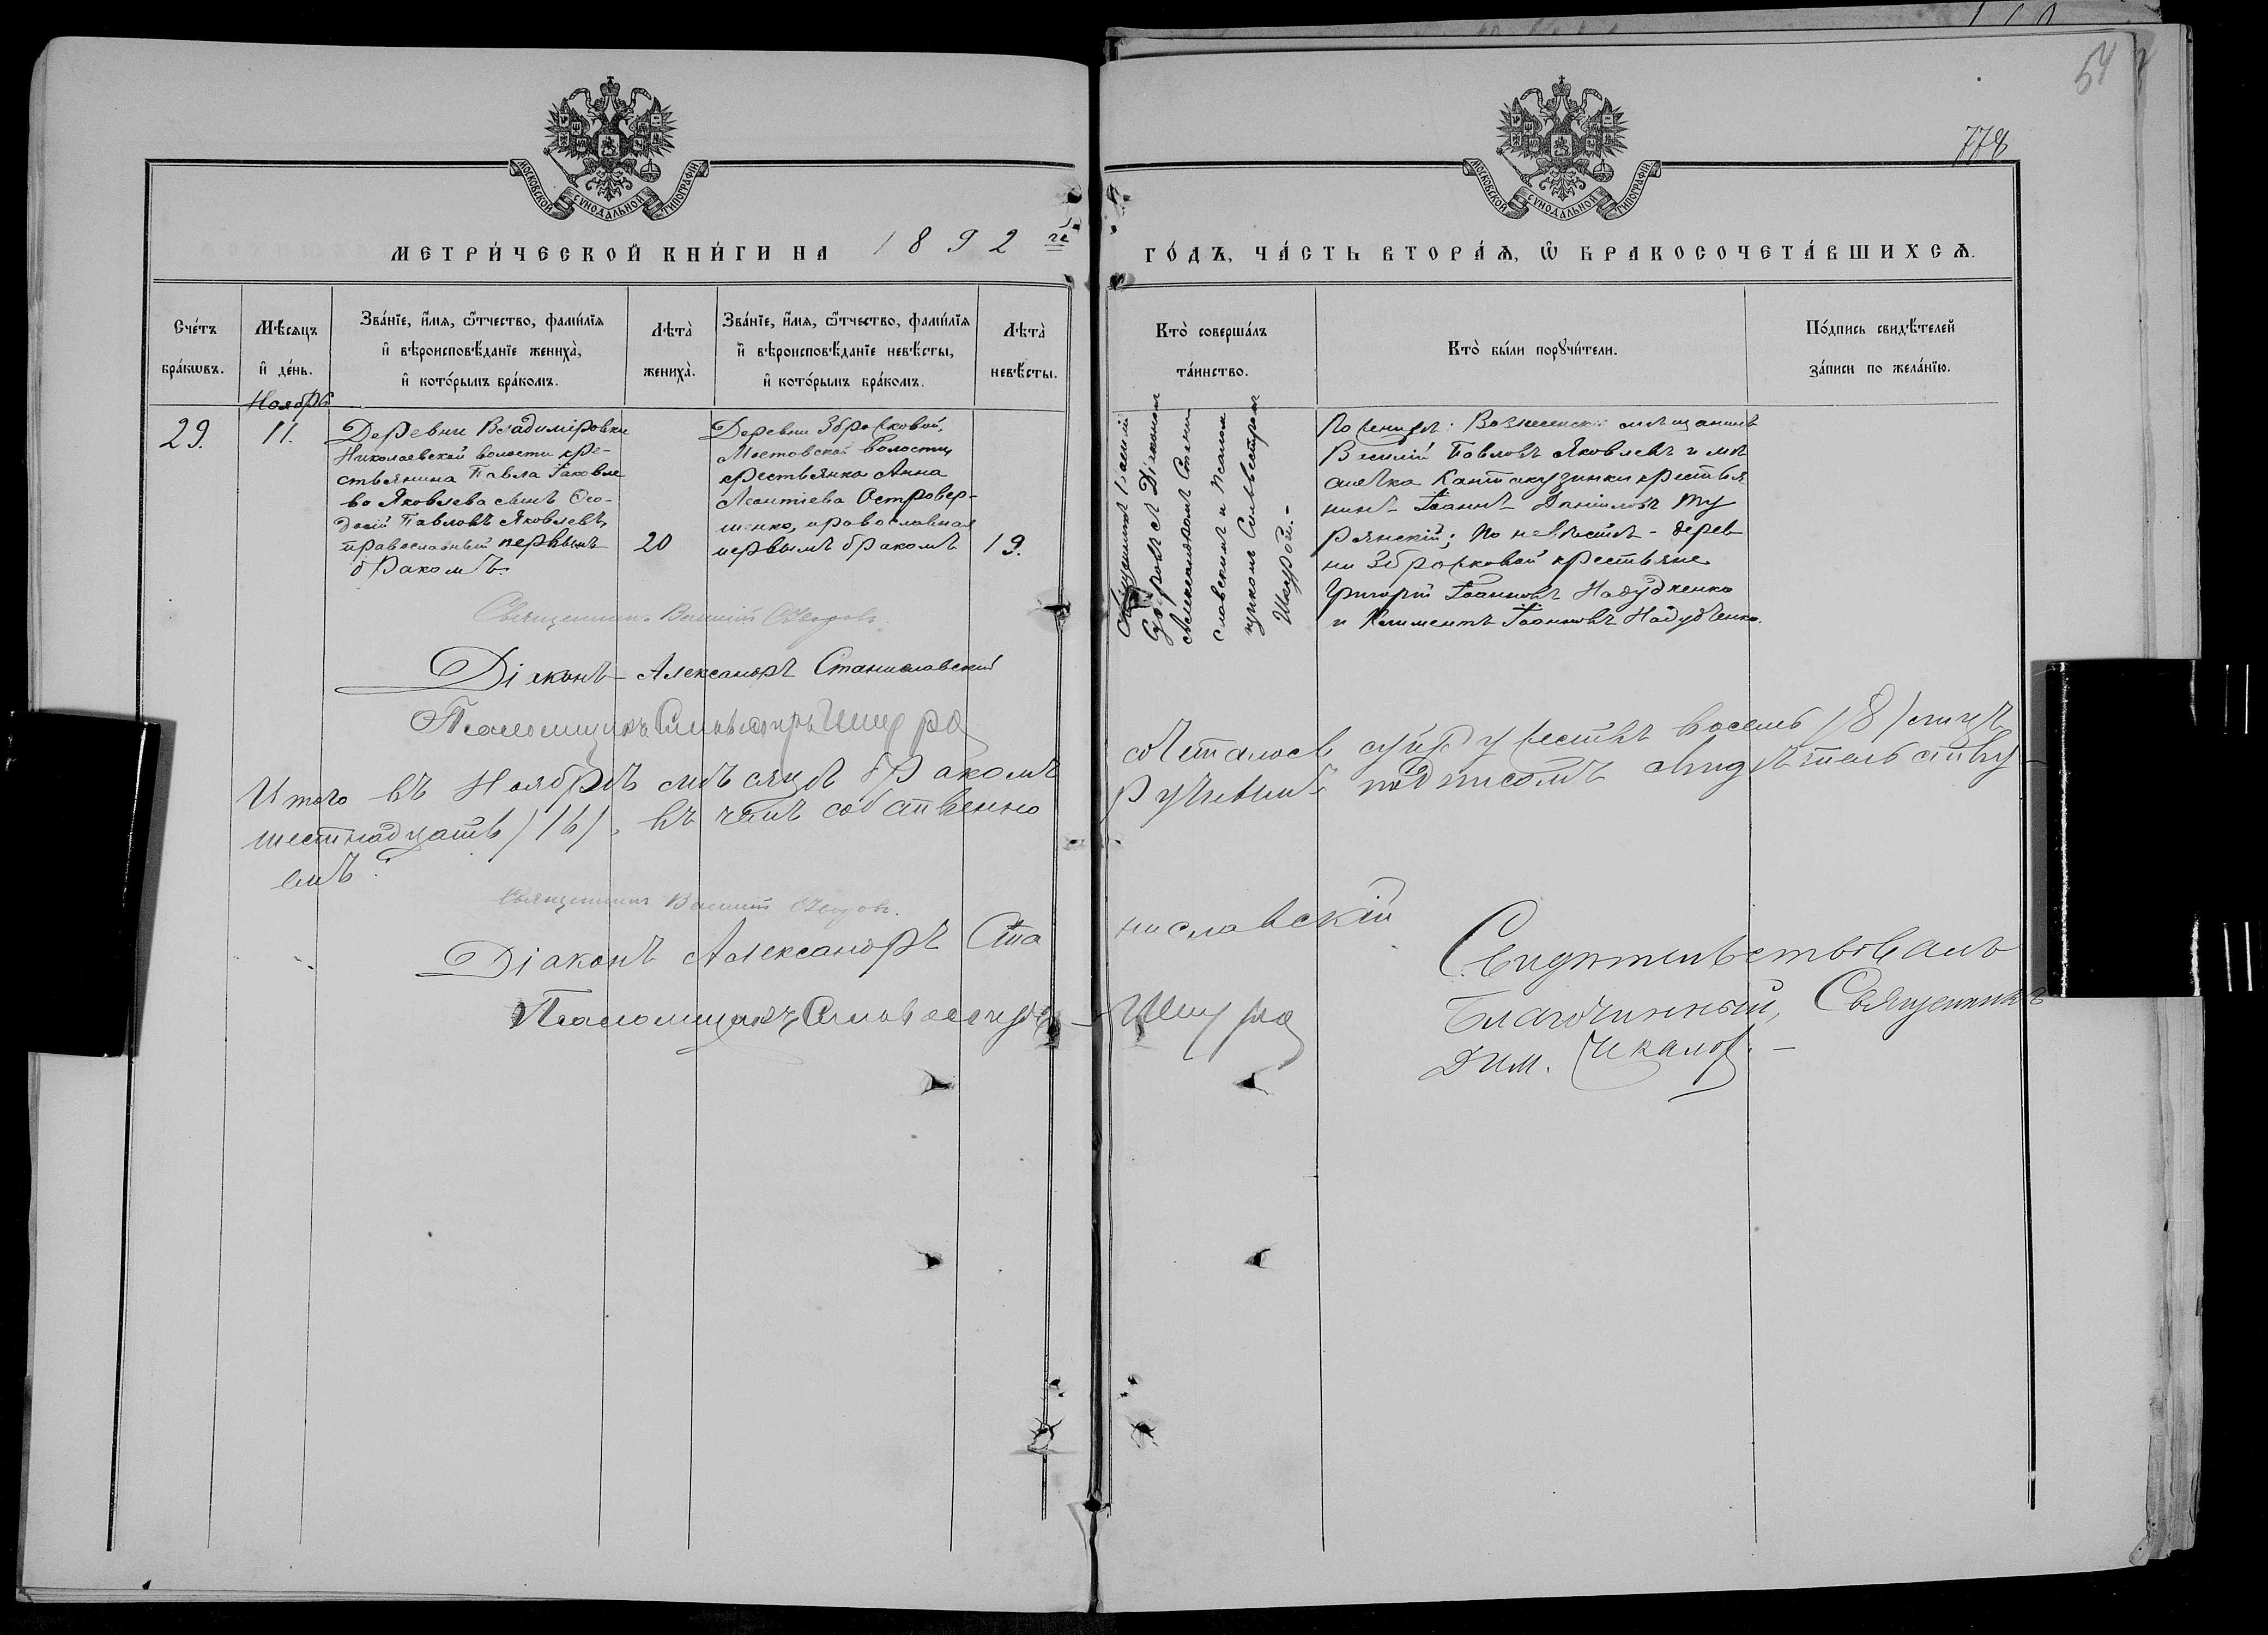 54
778
МОСКОВСКОЙ СѴНОДАЛЬНОЙ ТИПОГРАФІИ
МОСКОВСКОЙ СѴНОДАЛЬНОЙ ТИПОГРАФІИ
МЕТРИ́ЧЕСКОЙ КНИ́ГИ НА 1892 й
ГО́ДЪ, ЧА́СТЬ ВТОРА́Ѧ, Ѽ БРАКОСОЧЕТА́ВШИХСѦ.
Сче́тъ
бра́кѡвъ.
Мѣ́сяцъ
и҆ де́нь.
Зва́нїе, и҆́мя, ѻ҆́тчество, фами́лїя
и҆ вѣроисповѣ́данїе жениха̀,
и҆ кото́рымъ бра́комъ.
Лѣта̀
жениха̀.
Зва́нїе, и҆́мя, ѻ҆́тчество, фами́лїя
и҆ вѣроисповѣ́данїе невѣ́сты,
и҆ кото́рымъ бра́комъ.
Лѣта̀
невѣ́сты.
Кто̀ соверша́лъ
та́инство.
Кто̀ бы́ли порꙋчи́тели.
По́дпись свидѣ́телей
за́писи по жела́нїю.
Ноября
29.
11.
Деревни Владиміровки
Николаевской волости кре-
стьянина Павла Іаковле
ва Яковлева сынъ Ѳео-
досій Павловъ Яковлевъ,
православный первымъ
бракомъ.
20
Деревни Зброжковой,
Мостовской волости,
крестьянка Анна
Леонтіева Островер-
шенко, православная
первымъ бракомъ
19.
Священникъ Василій
Діакономъ
Александромъ Стани
славскимъ и Псалом
щикомъ Сильвестромъ
Шкурой.-
По женихѣ: Вознесенскій мѣщанинъ
Василій Павловъ Яковлевъ и мѣ
стечка Кантакузинки крестья
нинъ Іоаннъ Даніиловъ Ту
рянскій; по невѣстѣ - дерев
ни Зброжковой крестьяне
Григорій Іоанновъ Надудченко
и Климентъ Іоанновъ Надудченко.
Священникъ Василій
Діаконъ Александръ Станиславскій
Псаломщикъ Сильвестръ Шкура
Итого въ Ноябрѣ мѣсяцѣ бракомъ сочеталось супружествъ восемь /8/ лицъ
шестнадцать /16/, въ чемъ собственно ручнымъ подписомъ свидѣтельству
емъ:
Священникъ Василій
Діаконъ Александръ Станиславскій
Псаломщикъ Сильвестръ Шкура
Свидѣтельствовалъ
Благочинный, Священникъ
Дим. Чкалов. -